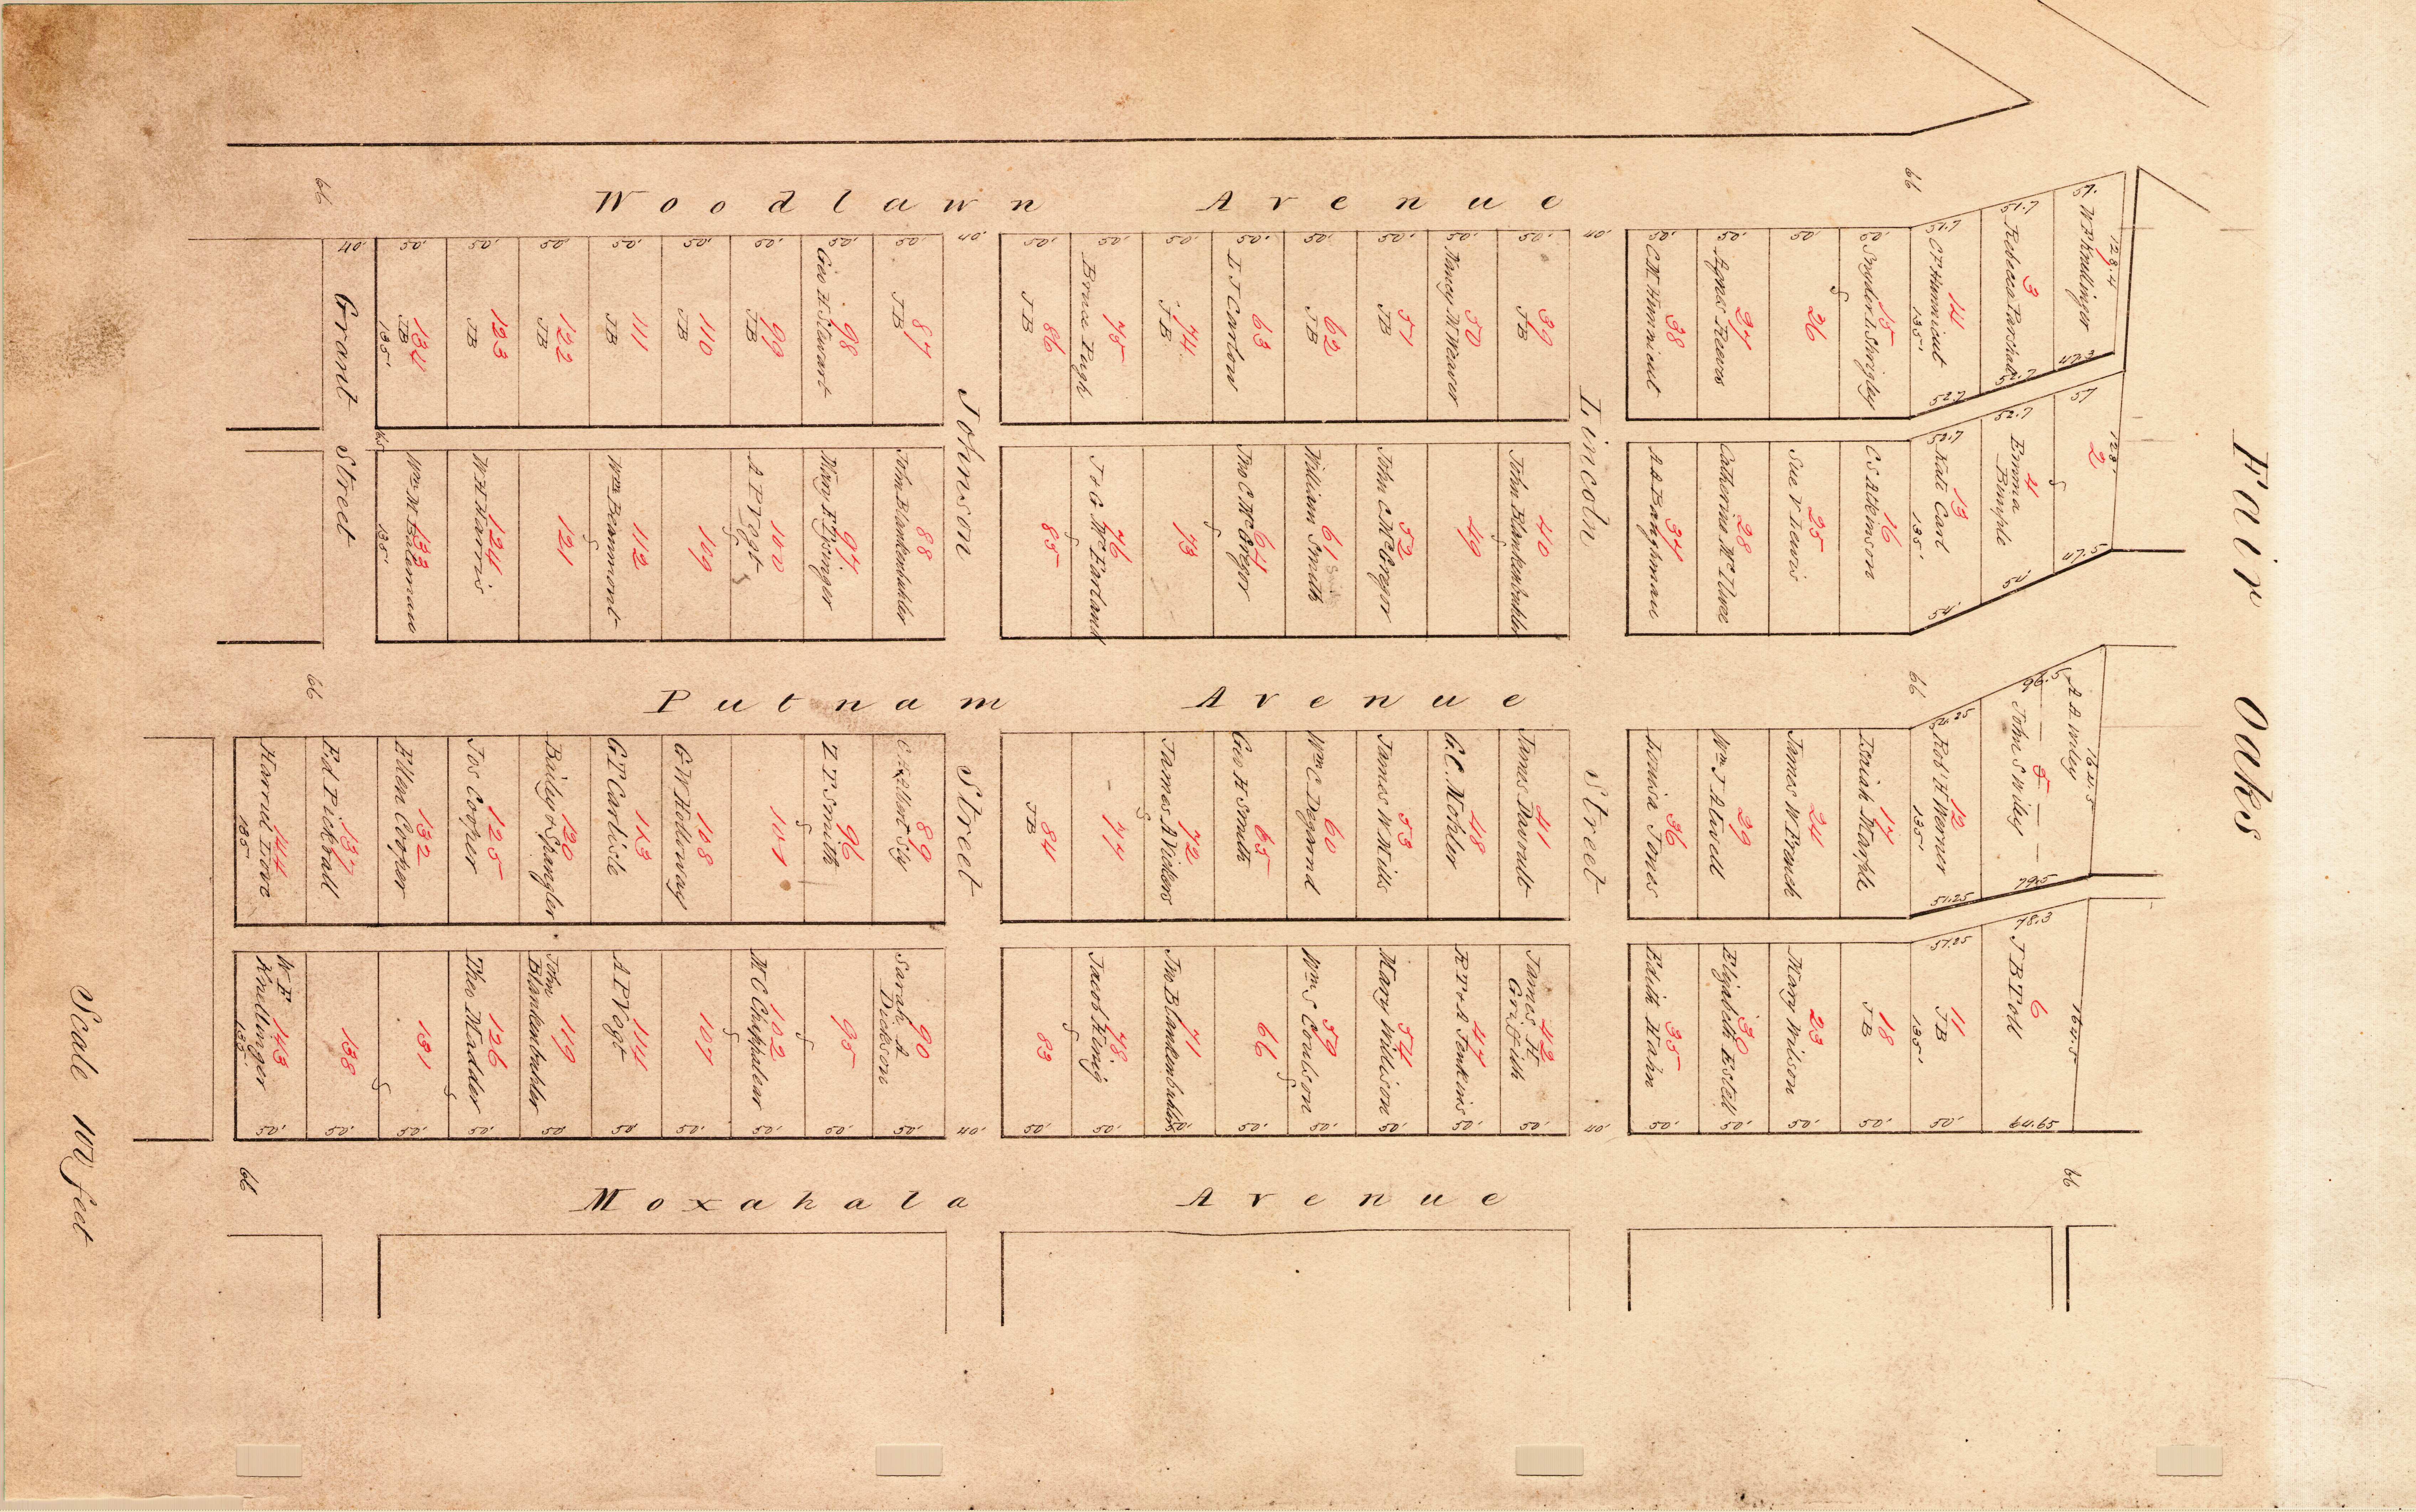 Fair Oaks
Woodlawn Avenue
66
66
40'
50'
50'
50'
50'
50'
50'
50'
50'
40'
50'
50'
50'
50'
50'
50'
50'
50'
40'
50'
50'
50
50'
51.7
51.7
57.
134
JB
135'
123
JB
122
JB
111
JB
110
JB
99
JB
98
Geo H Stewart
87
JB
86
JB
75
Bruce Pugh
74
JB
63
L J Carlow
62
JB
51
JB
50
Nancy M Weaver
39
JB
38
C. M. Hunnicut
37
Agnes Reeves
26
15
Snyder & Shrigley
14
C F Hunnicut
135'
3
Rebecca Parshall
W F Knellinger
128.4
52.7
52.7
47.3
Grant Street
Johnson Street
Lincoln Street
133
Wm M Bateman
135'
124
W H Harris
121
112
Wm Beammont
109
100
A P Vogt
97
88
John Blankenbuhler
85
76
J & G McFarland
73
64
Jno C McGregor
61
William Smith
52
John C McGregor
49
40
John Blankenbuhler
34
A A Baughman
28
25
Sue V Lewis
16
C S Atkinson
52.7
13
Kate Carl
135'
52.7
4
Emma Bumple
57
2
128'
54'
54'
47.5
Putnam Avenue
66
66
144
135'
137
Ed Pickrall
132
Ellen Cooper
125
Jos Cooper
120
Bailey & Spangler
113
G T Carlisle
108
G W Holloway
101
96
Z T Smith
89
84
JB
77
72
James A Vickers
65
Geo H Smith
60
Wm C Degarmd
53
James W Mills
48
G. C. Mohler
41
James Davault
36
Louisa Jones
29
Wm J Atwell
24
James W French
17
Isaiah Marple
54.25
12
Rob' H Werner
135'
96.5
5
John S Wiley
A A Wiley
164.5
51.25
79.5
143
W F Knellinger
135'
138
131
126
Theo Madder
119
John Blankenbuhler
114
A P Vogt
107
102
95
90
Sarah A Dickson
83
78
Jacob König
71
Jno Blankenbuhler
66
59
Wm S Coulson
54
Mary Willison
47
R T & A Jenkins
42
James H Griffith
35
Edith Hahn
30
Elizabeth Estell
23
Mary Wilson
18
JB
51.25
11
JB
135'
78.3
6
J B Toll
164.5
50'
50'
50'
50'
50
50
50'
50'
50'
50'
40'
50'
50'
50'
50'
50'
50'
50'
50'
40'
50'
50'
50'
50'
50'
64.65
66
66
Moxahala Avenue
Scale 100 feet